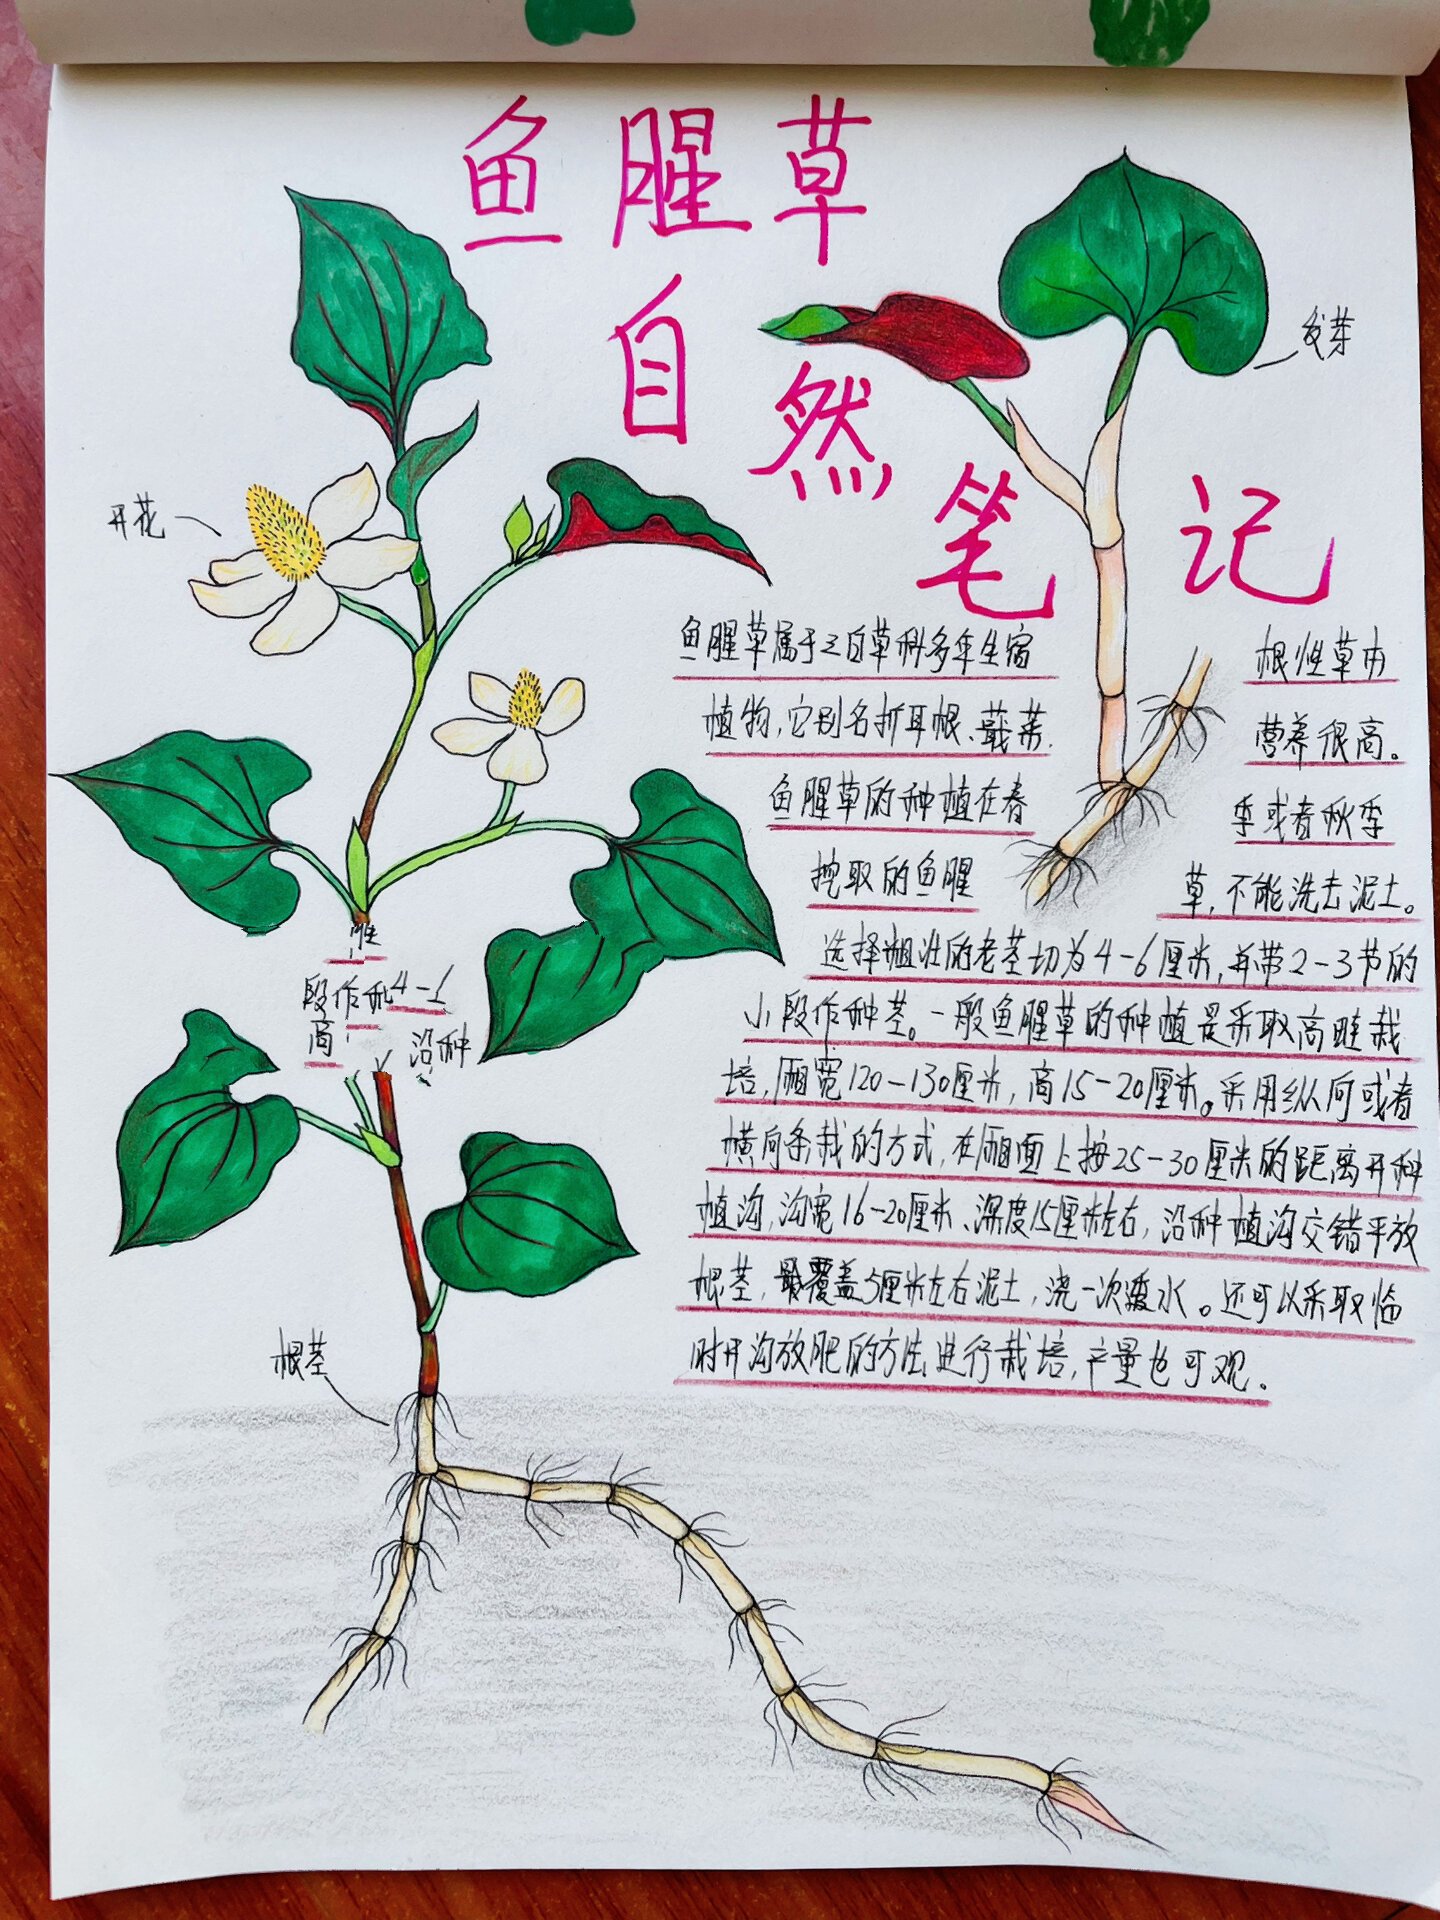 鱼腥草
自然笔记
发芽
开花
鱼腥草属于三白草科多年生宿
根性草本
植物,它别名折耳根、蕺菜.
营养很高。
鱼腥草的种植在春
季或者秋季
挖取的鱼腥
草,不能洗去泥土。
选择粗壮的老茎切为4-6厘米,并带2-3节的
小段作种茎。一般鱼腥草的种植是采取高畦栽
培,厢宽120-130厘米,高15-20厘米。采用纵向或者
横向条栽的方式,在厢面上按25-30厘米的距离开种
植沟,沟宽16-20厘米、深度15厘米左右,沿种植沟交错平放
根茎,最覆盖5厘米左右泥土,浇一次透水。还可以采取临
时开沟放肥的方法进行栽培,产量也可观。
段作 4-
高
沿种
根茎